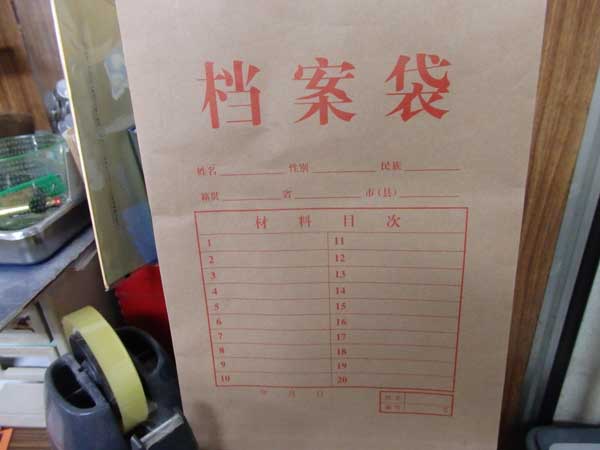 档案袋
姓名 性别 民族
籍贯 省 市（县）
材料目次
1 11
2 12
3 13
4 14
5 15
6 16
7 17
8 18
9 19
10 20
年 月 日